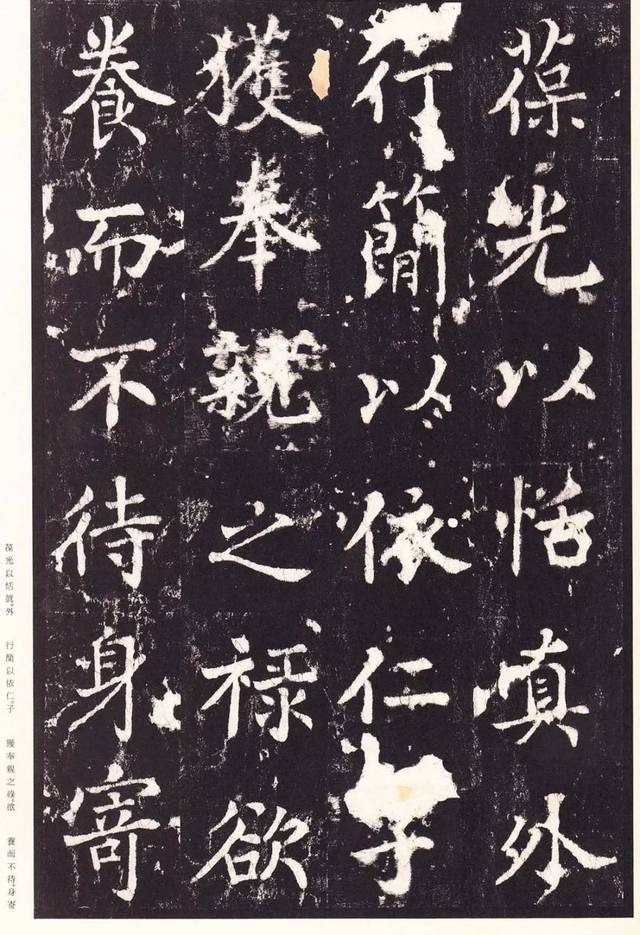 葆光以恬真外
行簡以依仁子
獲奉親之祿欲
養而不待身寄
葆光以恬真。外 行簡以依仁。子 獲奉親之祿。欲 養而不待。身寄